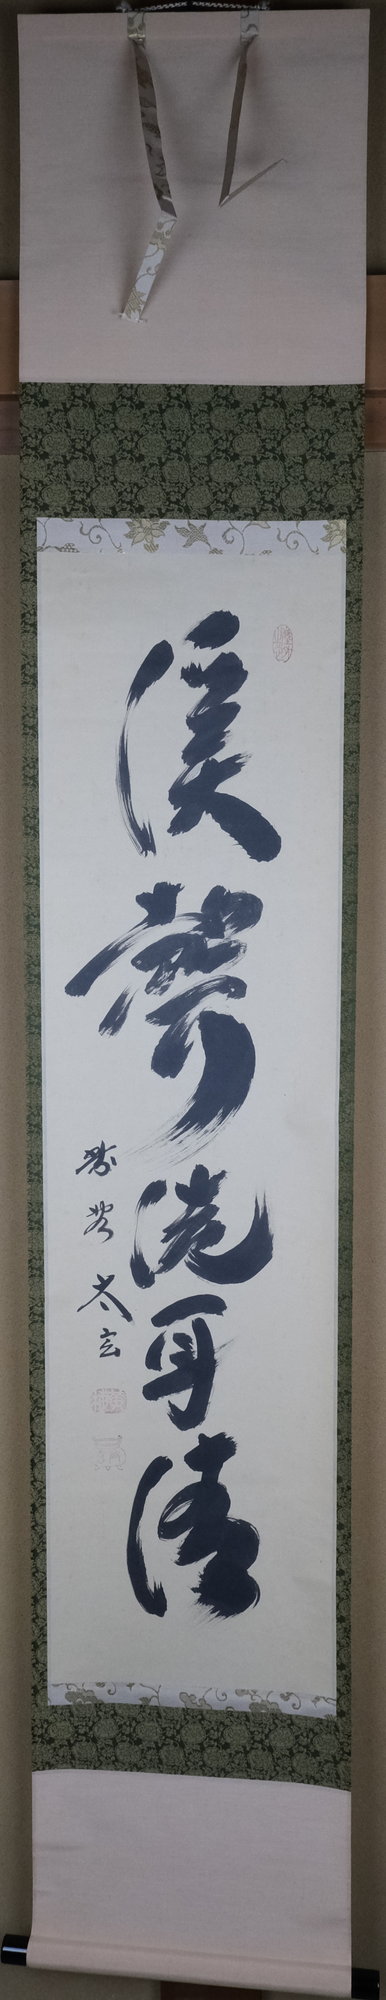 渓聲洗耳清
紫野太玄